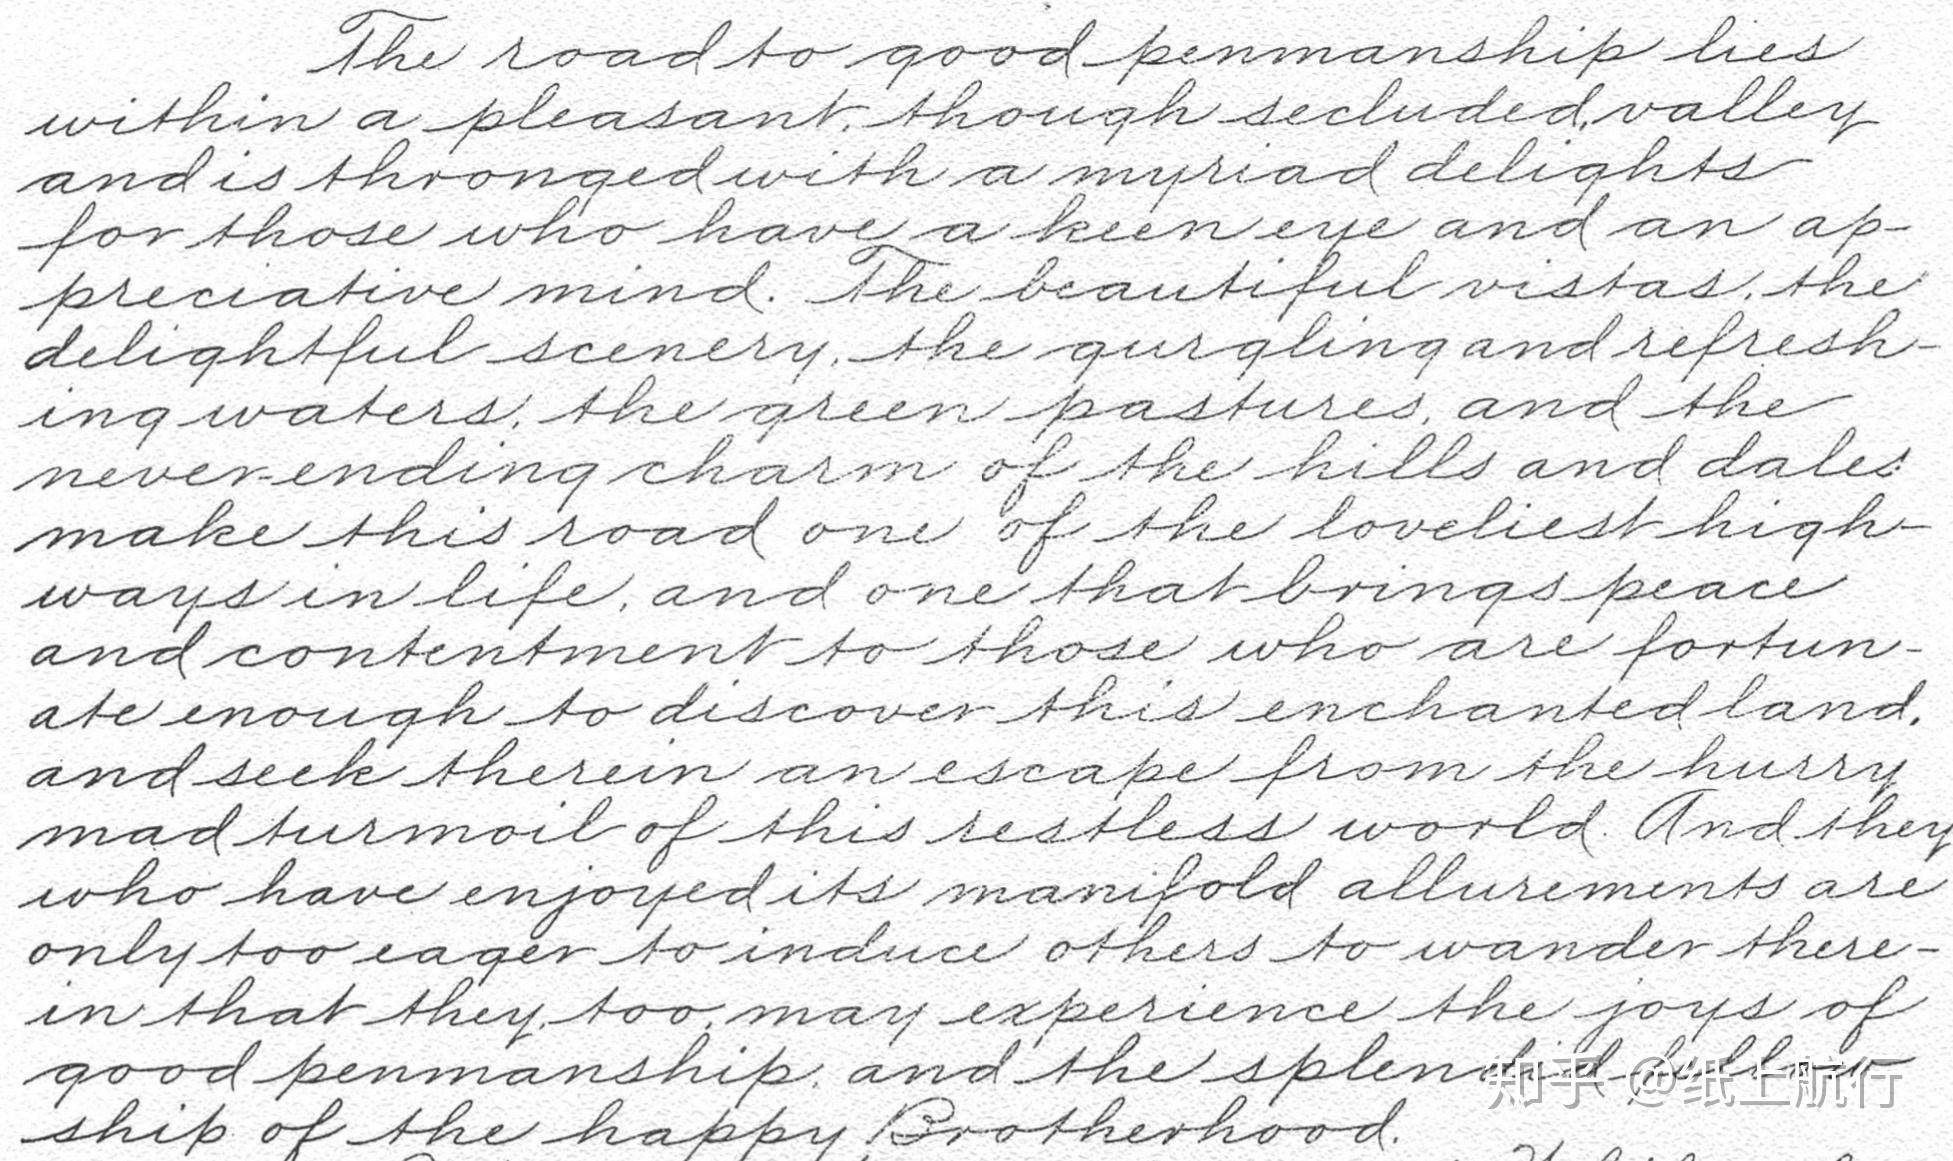 The road to good penmanship lies
within a pleasant, though secluded, valley
and is thronged with a myriad delights
for those who have a keen eye and an ap-
preciative mind. The beautiful vistas, the
delightful scenery, the gurgling and refresh-
ing waters, the green pastures, and the
never-ending charm of the hills and dales
make this road one of the loveliest high-
ways in life, and one that brings peace
and contentment to those who are fortun-
ate enough to discover this enchanted land,
and seek therein an escape from the hurry
mad turmoil of this restless world. And they
who have enjoyed its manifold allurements are
only too eager to induce others to wander there-
in that they, too, may experience the joys of
good penmanship, and the splendid fellow
知乎 @纸上航行
ship of the happy Brotherhood.